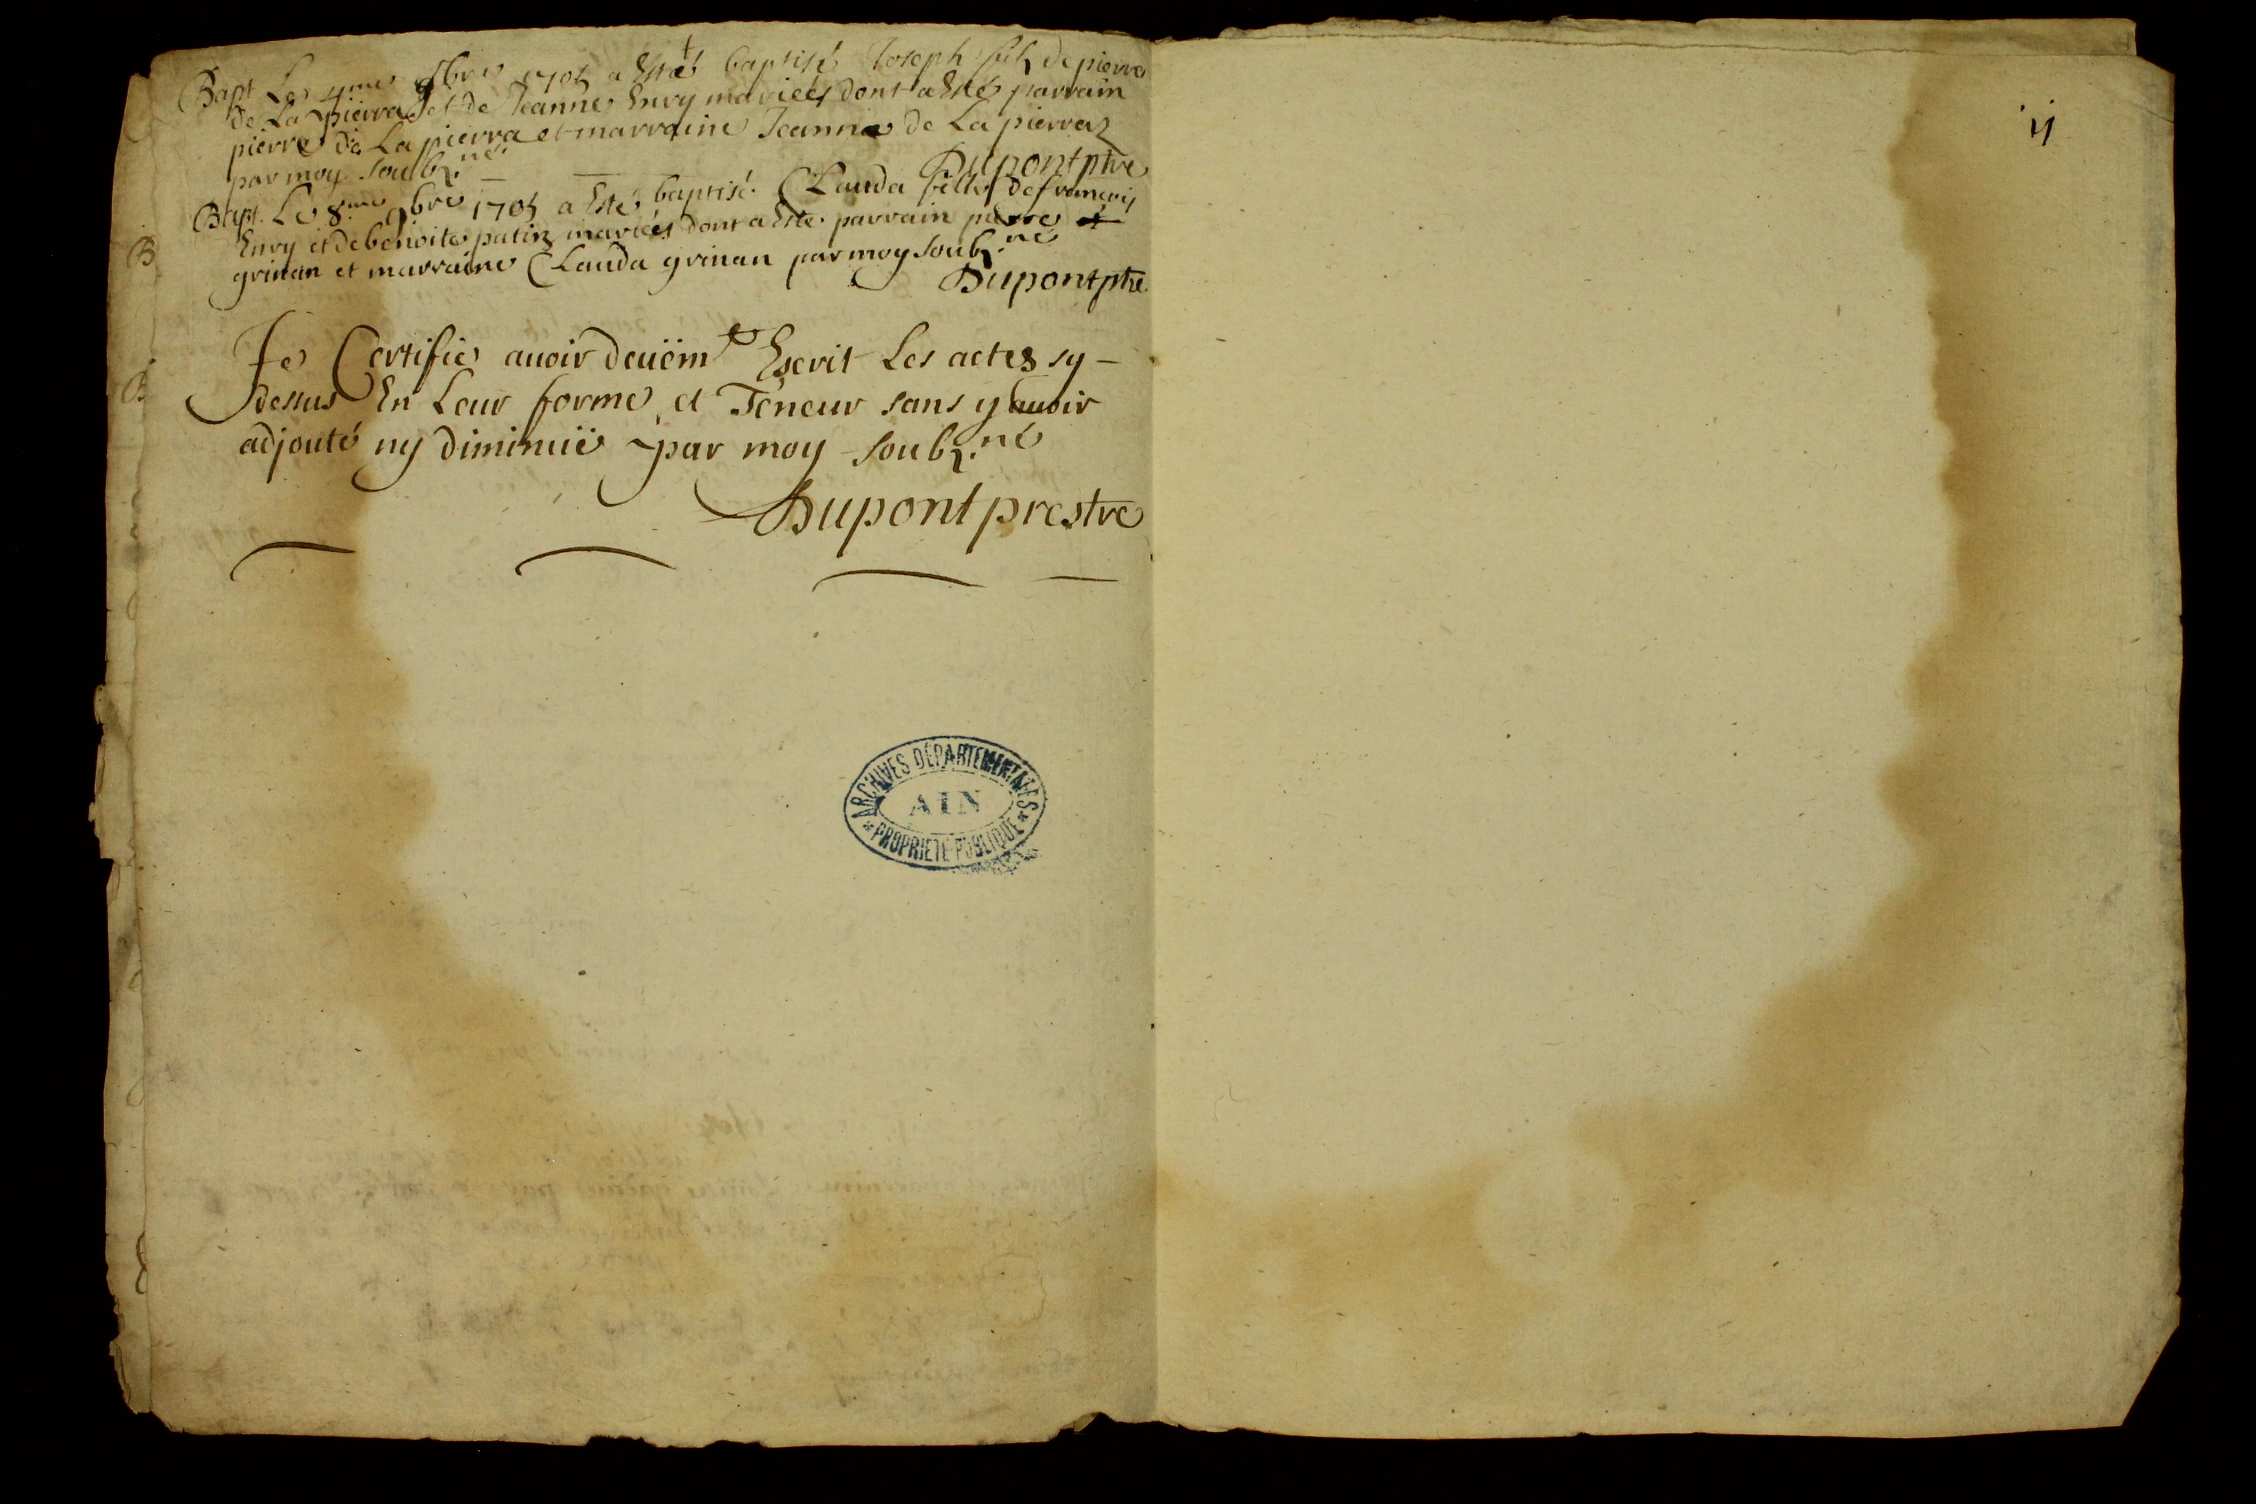 Bapt. Le 4me 9bre 1705 a Esté baptisé Joseph filz de pierre
de La pierra et de Jeanne Envy mariées dont a Esté parrain
pierre de La pierra et marraine Jeanna de La pierraz
par moy soubz.né
Dupont ptre
Bapt. Le 8.me 9bre 1705 a Esté baptisé Clauda fille de françois
Envy et de benoite putin mariées dont a Este parrain pierre
grinan et marraine Clauda grinan par moy soubz.né
Dupont ptre
Je Certifie avoir deuëmt Escrit Les actes sy-
dessus En Leur forme et Teneur sans y avoir
adjouté ny diminuë par moy soubz.né
Dupont prestre
ARCHIVES DÉPARTEMENTALES
AIN
* PROPRIÉTÉ PUBLIQUE *
B
B